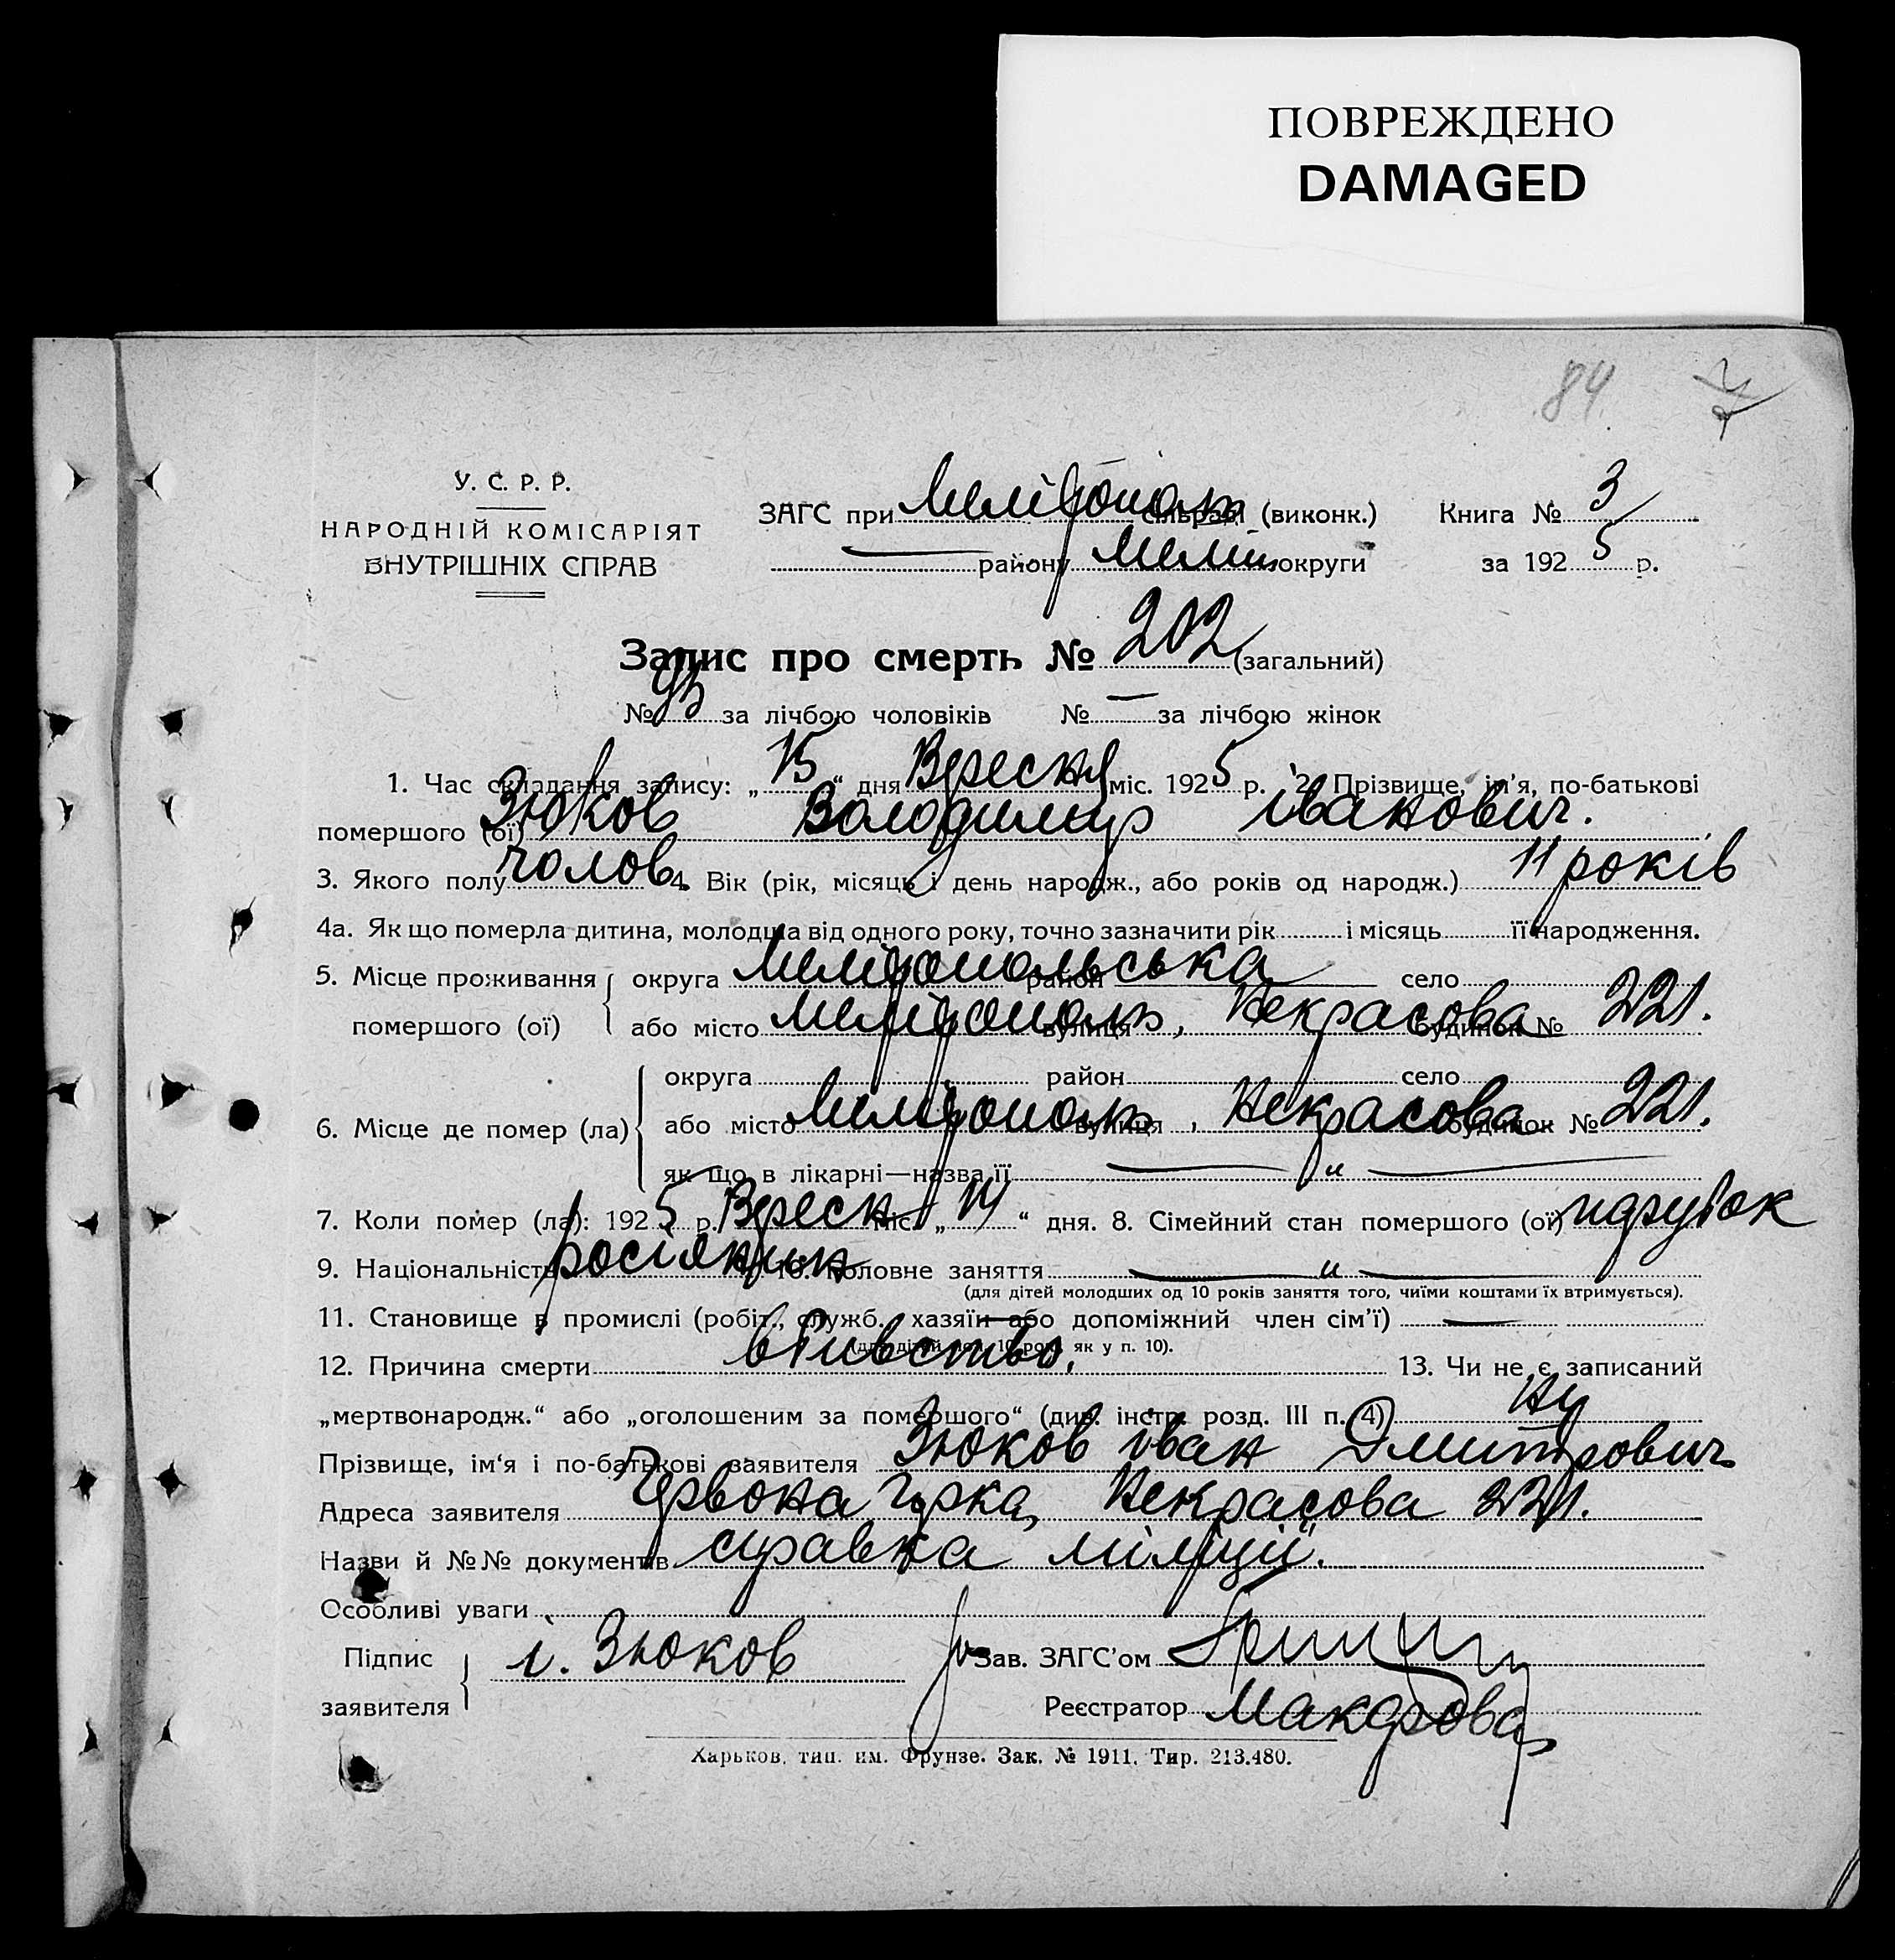 ПОВРЕЖДЕНО
DAMAGED
84
У. С. Р. Р.
НАРОДНІЙ КОМІСАРІЯТ
ВНУТРІШНІХ СПРАВ
ЗАГС при Мелітополь сільраді (виконк.) Книга № 3
району Меліт. округи за 1925 р.
Запис про смерть № 202 (загальний)
№ за лічбою чоловіків № — за лічбою жінок
1. Час складання запису: „15“ дня Вересня міс. 1925 р. 2. Прізвище, ім'я, по-батькові
помершого (ої) Зюков Володимир Іванович.
3. Якого полу чолов. 4. Вік (рік, місяць і день народж., або років од народж.) 11 років
4а. Як що померла дитина, молодша від одного року, точно зазначити рік і місяць її народження.
5. Місце проживання помершого (ої) округа Мелітопольська район село
або місто Мелітополь, вулиця Некрасова будинок № 221.
6. Місце де помер (ла) округа район село
або місто Мелітополь, вулиця Некрасова будинок № 221.
як що в лікарні—назва її — „ —
7. Коли помер (ла): 1925 р. Вересн міс. „14“ дня. 8. Сімейний стан помершого (ої) парубок
9. Національність росіянин 10. Головне заняття — „ —
(для дітей молодших од 10 років заняття того, чиїми коштами їх втримується).
11. Становище в промислі (робіт., служб., хазяїн або допоміжний член сім'ї) —
(для дітей мол. 10 рок. як у п. 10).
12. Причина смерти вбивство. 13. Чи не є записаний
„мертвонародж.“ або „оголошеним за помершого“ (див. інстр. розд. III п. 4) Ні
Прізвище, ім'я і по-батькові заявителя Зюков Іван Дмитрович
Адреса заявителя Червона Гірка, Некрасова 221.
Назви й №№ документів справка міліції.
Особливі уваги
Підпис заявителя І. Зюков Зав. ЗАГС'ом
Реєстратор
Харьков, тип. им. Фрунзе. Зак. № 1911. Тир. 213.480.